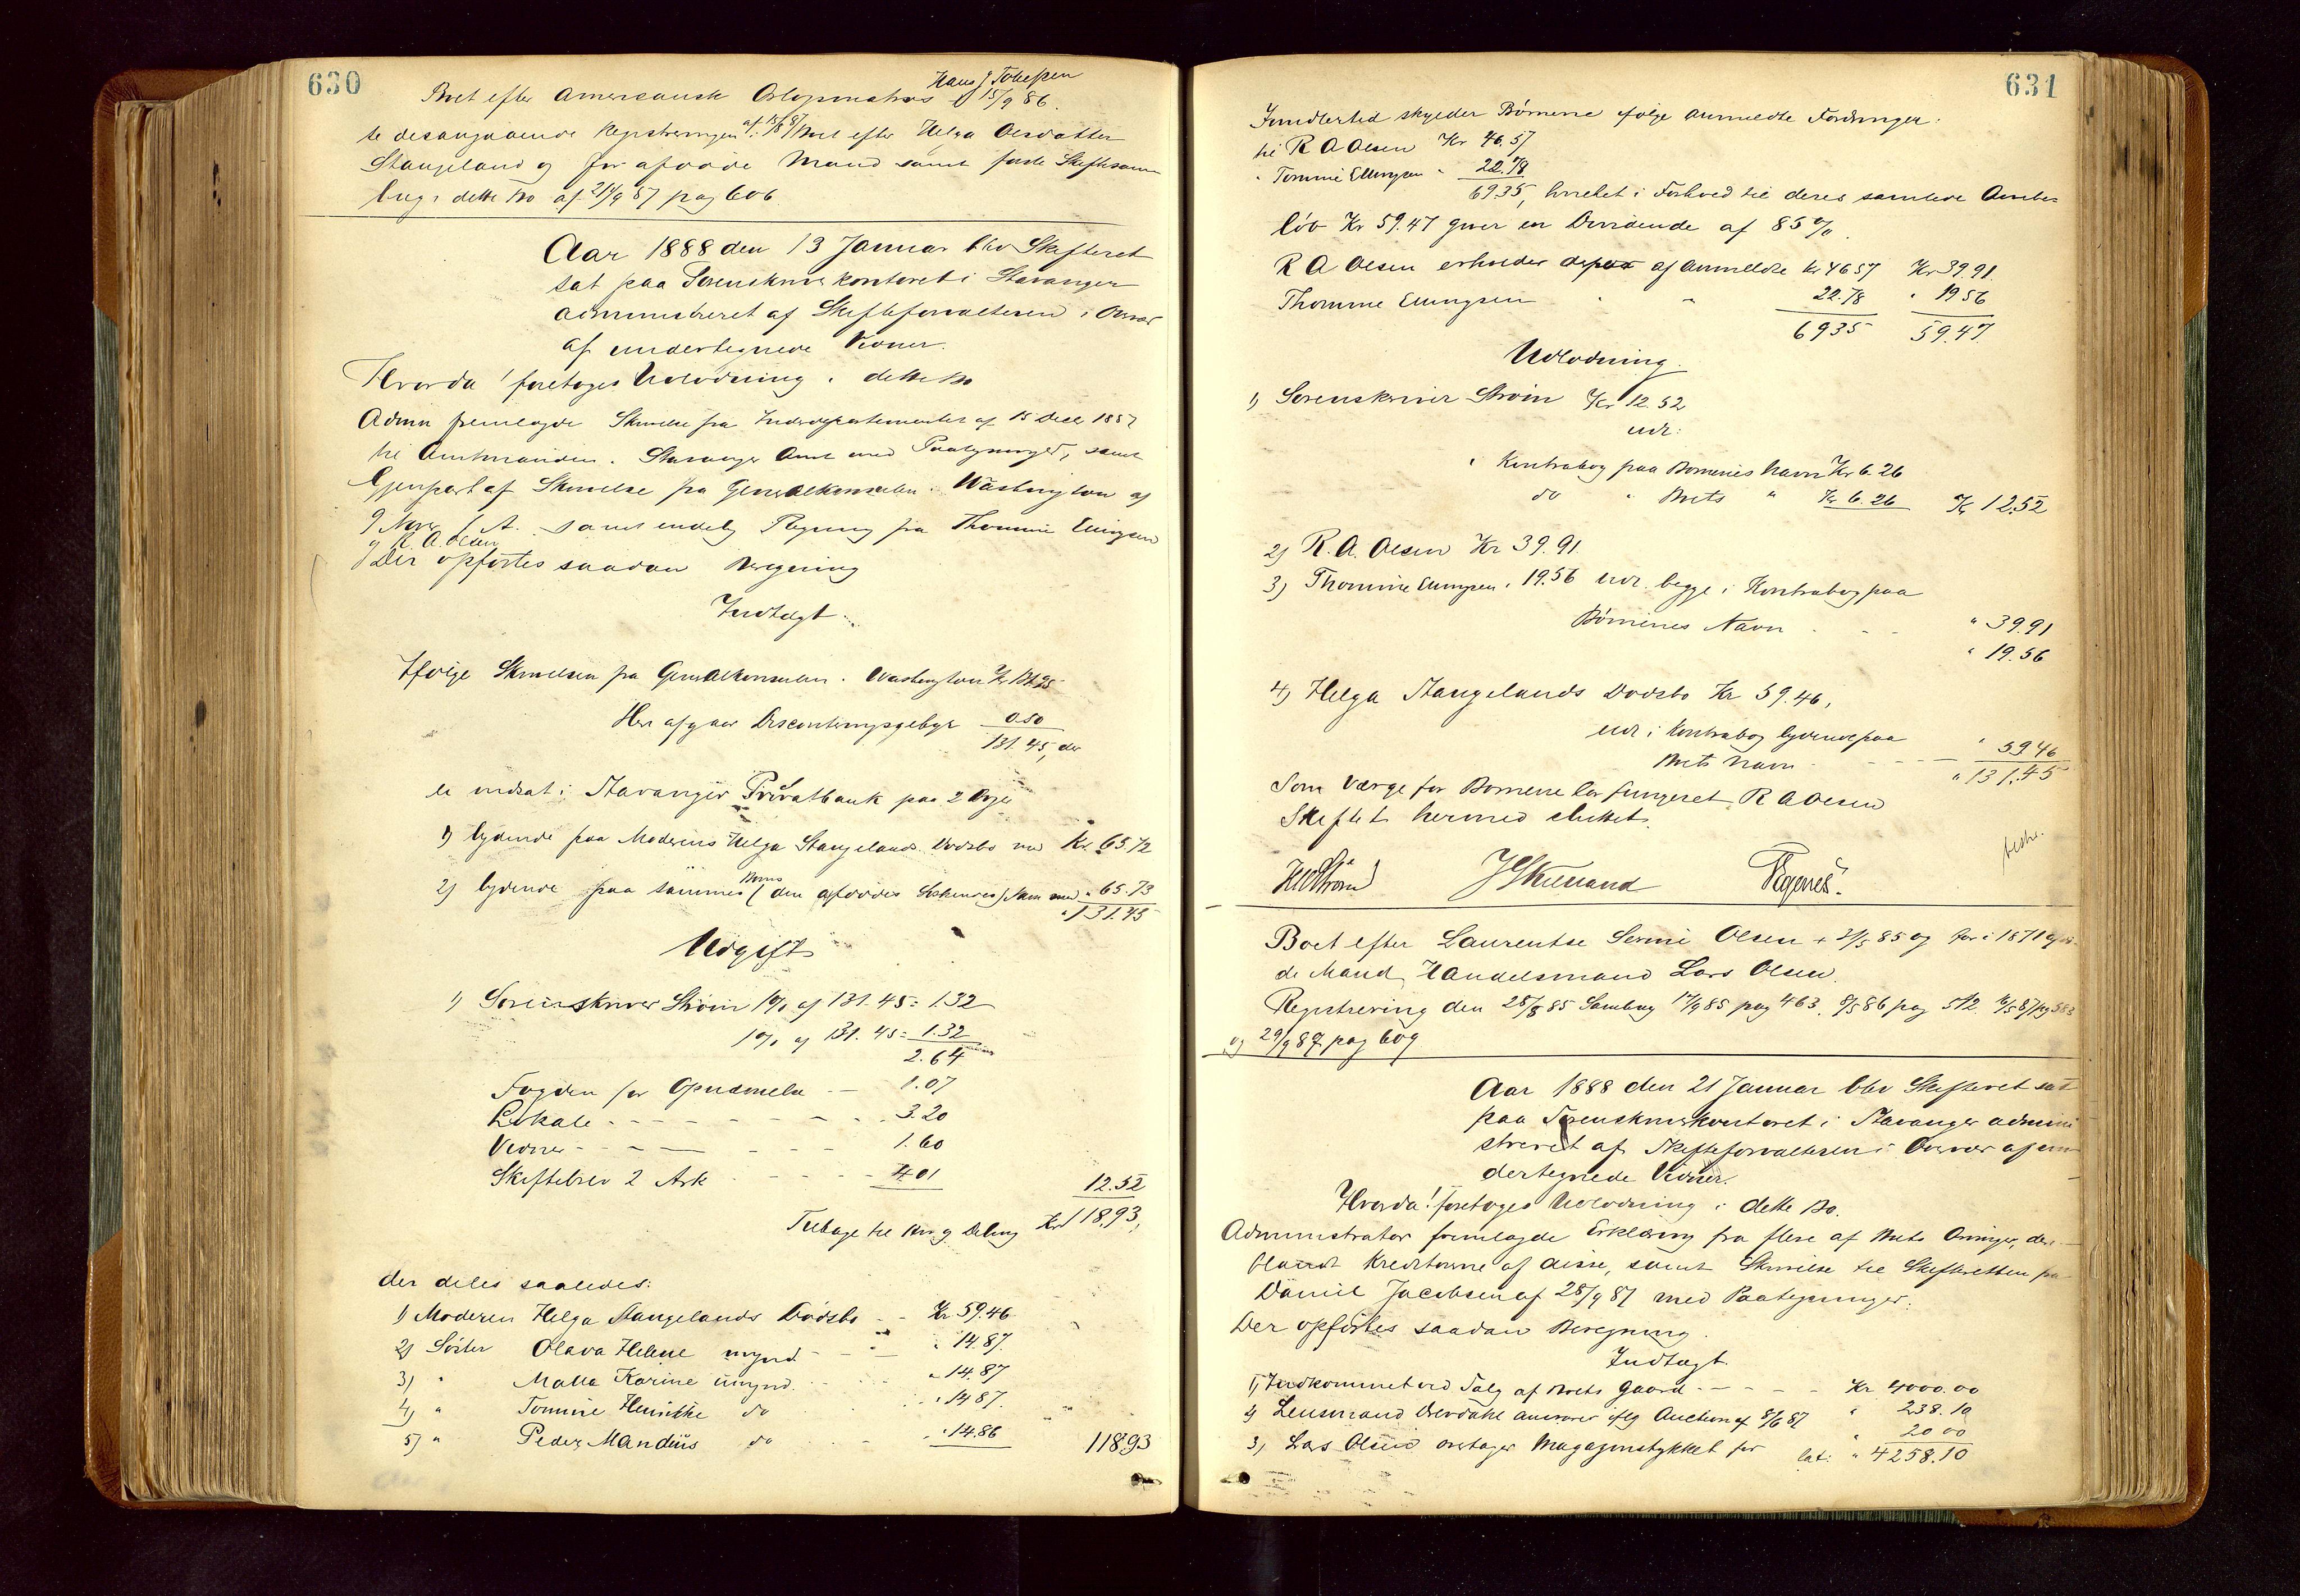 630
Hans J Tollefsen
Boet efter Amerikansk Orlogsmatros † 15/9 86.
se desangaaende Registreringen af 15/8 87 i Boet efter Helga Olesdatter
Stangeland og før afdøde Mand samt sidste Skiftesam-
ling i dette Bo af 21/9 87 pag 606
Aar 1888 den 13 Januar blev Skifteret
sat paa Sorenskriverkontoret i Stavanger
administreret af Skifteforvalteren i Overvær
af undertegnede Vidner.
Hvorda! foretoges Udlodning i dette Bo
Admin fremlagde Skrivelse fra Indredepartementet af 15 Decb 1887
til Amtmanden i Stavanger Amt med Paategninger, samt
Gjenpart af Skrivelse fra Generalkonsulen i Washington af
9 Novr f. A. samt endelig Regning fra Thommie Ellingsen
og R. A. Olsen
Der opførtes saadan Beregning
Indtægt.
Ifølge Skrivelsen fra Generalkonsulen i Washington Kr 131.95
Her afgaar Disconteringsgebyr 0.50
131.45, der
er indsat i Stavanger Privatbank paa 2 Bøger
1) lydende paa Moderens Helga Stangelands Dødsbo med Kr. 65.72
2) lydende paa sammes Børns (den afdødes Søskendes) Navn med " 65.73
" 131.45
Udgift
1) Sorenskriver Strøm 1% af 131.45 = 1.32
1% af 131.45 = 1.32
2.64
Fogden for Opnævnelse — 1.07
Lokale - - - - - - 3.20
Vidner - - — - - - 1.60
Skiftebrev 2 Ark - - - - 4.01
12.52
Tilbage til Arv og Deling Kr 118.93,
der deles saaledes:
1) Moderen Helga Stangelands Dødsbo - - Kr 59.46
2) Søster Olava Helene mynd. - — " 14.87.
3) " Malla Karine umynd. - - " 14.87
4) " Tomine Henrikke do " 14.87.
5) " Peder Mandius do " 14.86
118.93
631
Imidlertid skylder Børnene ifølge anmeldte Fordringer:
til R A Olsen Kr 46.57
" Tommie Ellingsen " 22.78
69.35, hvilket i Forhold til deres samlede Arvebe-
løb Kr 59.47 giver en Dividende af 85%.
R A Olsen erholder af anmeldte Kr 46 57 Kr 39.91
Thomme Ellingsen " " 22.78 " 19 56
69 35 59.47.
Udlodning.
1) Sorenskriver Strøm Kr 12.52
udl:
i Kontrabog paa Børnenes Navn Kr 6.26
do " Boets " Kr 6.26 Kr 12.52
2) R. A. Olsen Kr 39.91
3) Thommie Ellingsen " 19.56 udl. begge i Kontrabog paa
Børnenes Navn - - - " 39.91
" 19.56
4) Helga Stangelands Dødsbo Kr 59.46,
udl i Kontrabog lydende paa
Boets Navn - - - - " 59.46
" 131.45
Som Værge for Børnene har fungeret R A Olsen
Skiftet hermed sluttet.
Boet efter Laurentse Serine Olsen † 21/5 85 og før i 1871 afdø-
de Mand, Handelsmand Lars Olsen.
Registrering den 28/8 85 Samling 17/9 85 pag 463, 5/5 86 pag 512 6/5 87 pag 583
og 29/9 87 pag 609
Aar 1888 den 21 Januar blev Skifteret sat
paa Sorenskriverkontoret i Stavanger admini
streret af Skifteforvalteren i Overvær af un-
dertegnede Vidner.
Hvorda! foretoges Udlodning i dette Bo.
Administrator fremlagde Erklæring fra flere af Boets Arvinger, der-
blandt Kreditorerne af disse, samt Skrivelse til Skifteretten fra
Daniel Jacobsen af 28/9 87 med Paategninger.
Der opførtes saadan Beregning.
Indtægt.
1) Indkommet ved Salg af Boets Gaard - - - - Kr 4000.00
2) Lensmand anviser iflg Auction af 8/6 87 " 238.10
3) Lars Olsen overtager Magazinstykket for " 20 00
lat: " 4258.10